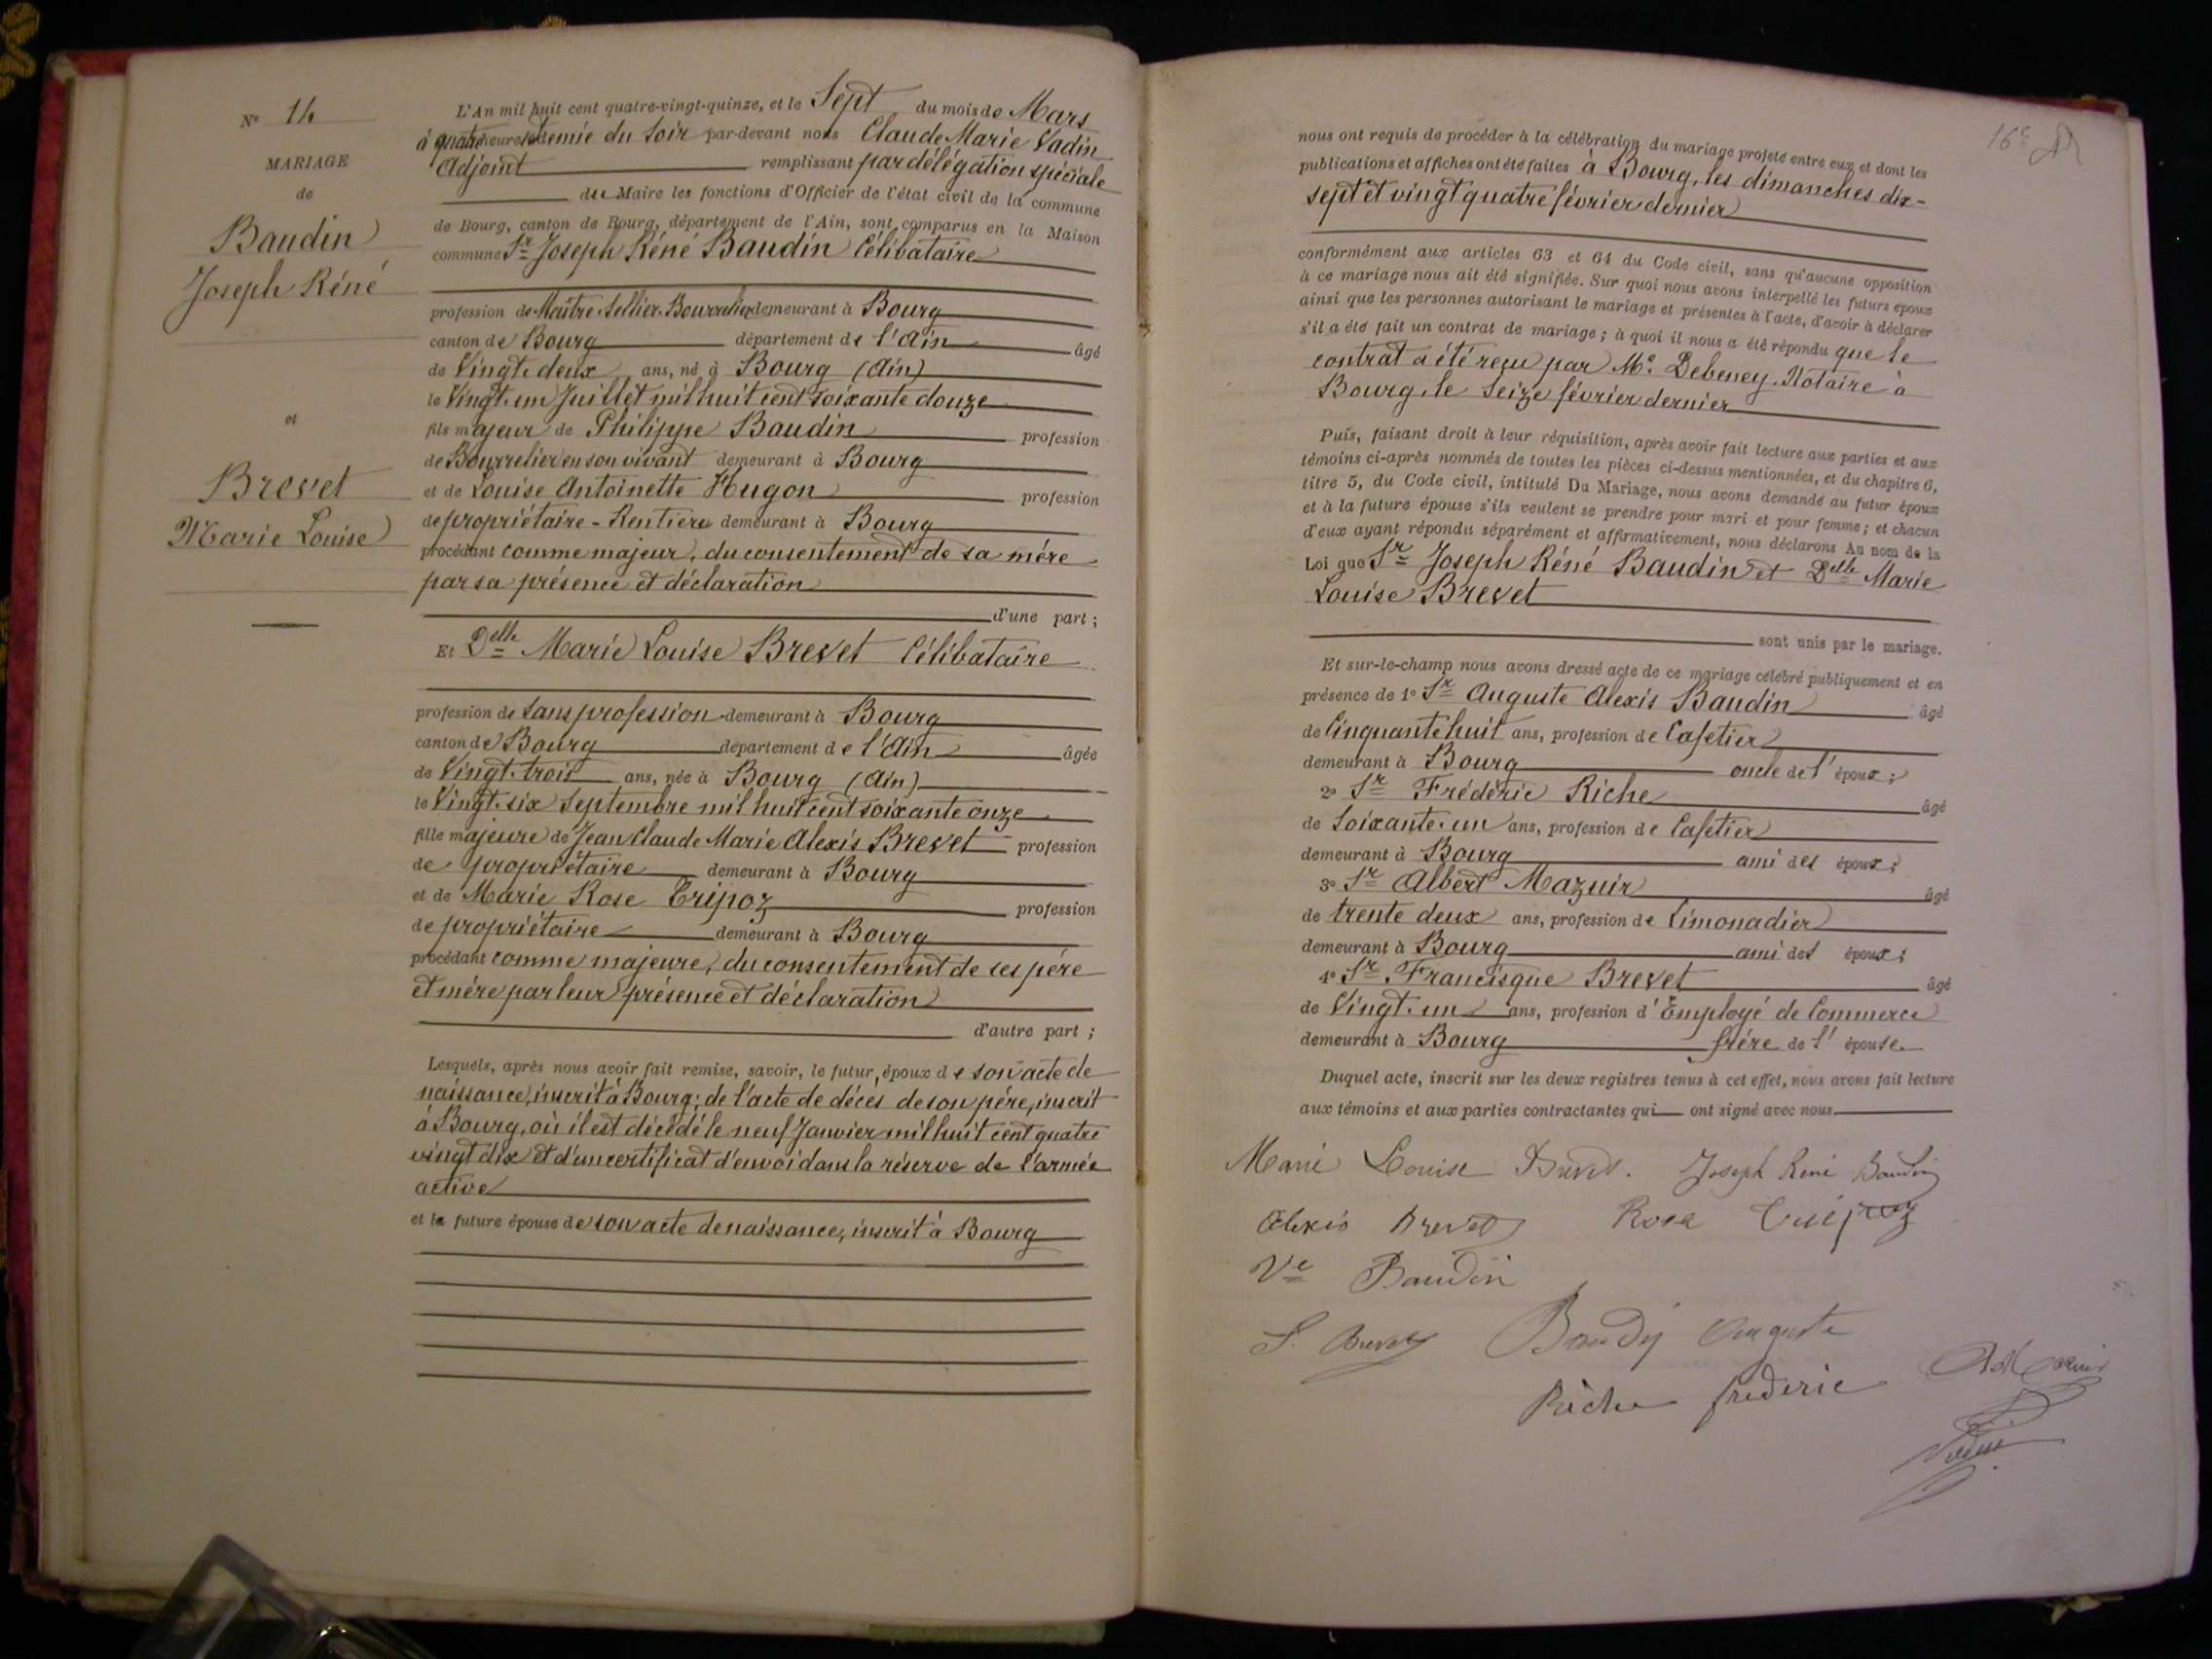 N° 14
MARIAGE
de
Baudin
Joseph Réné
et
Brevet
Marie Louise
L'An mil huit cent quatre-vingt-quinze, et le Sept du mois de Mars
à quatre heures et demie du Soir par-devant nous Claude Marie Vadin
Adjoint remplissant par délégation spéciale
du Maire les fonctions d'Officier de l'état civil de la commune
de Bourg, canton de Bourg, département de l'Ain, sont comparus en la Maison
commune Sr Joseph Réné Baudin Célibataire
profession de Maître Sellier Bourrelier demeurant à Bourg
canton de Bourg département de l'Ain âgé
de Vingt deux ans, né à Bourg (Ain)
le Vingt un Juillet mil huit cent soixante douze
fils majeur de Philippe Baudin profession
de Bourrelier en son vivant demeurant à Bourg
et de Louise Antoinette Hugon profession
de propriétaire - Rentière demeurant à Bourg
procédant comme majeur, du consentement de sa mére
par sa présence et déclaration
d'une part ;
Et Delle Marie Louise Brevet Célibataire
profession de Sans profession demeurant à Bourg
canton de Bourg département de l'Ain âgée
de Vingt trois ans, née à Bourg (Ain)
le Vingt six Septembre mil huit cent soixante onze
fille majeure de Jean Claude Marie Alexis Brevet profession
de propriétaire demeurant à Bourg
et de Marie Rose Tripoz profession
de propriétaire demeurant à Bourg
procédant comme majeure, du consentement de ses pére
et mére par leur présence et déclaration
d'autre part ;
Lesquels, après nous avoir fait remise, savoir, le futur époux de son acte de
naissance, inscrit à Bourg ; de l'acte de décès de son pére, inscrit
à Bourg, où il est décédé le neuf Janvier mil huit cent quatre
vingt dix et d'un certificat d'envoi dans la réserve de l'armée
active
et la future épouse de son acte de naissance, inscrit à Bourg
16e
nous ont requis de procéder à la célébration du mariage projeté entre eux et dont les
publications et affiches ont été faites à Bourg, les dimanches dix-
sept et vingt quatre février dernier
conformément aux articles 63 et 64 du Code civil, sans qu'aucune opposition
à ce mariage nous ait été signifiée. Sur quoi nous avons interpellé les futurs époux
ainsi que les personnes autorisant le mariage et présentes à l'acte, d'avoir à déclarer
s'il a été fait un contrat de mariage ; à quoi il nous a été répondu que le
contrat a été reçu par Me Debeney, Notaire à
Bourg, le Seize février dernier
Puis, faisant droit à leur réquisition, après avoir fait lecture aux parties et aux
témoins ci-après nommés de toutes les pièces ci-dessus mentionnées, et du chapitre 6,
titre 5, du Code civil, intitulé Du Mariage, nous avons demandé au futur époux
et à la future épouse s'ils veulent se prendre pour mari et pour femme ; et chacun
d'eux ayant répondu séparément et affirmativement, nous déclarons Au nom de la
Loi que Sr Joseph Réné Baudin et Delle Marie
Louise Brevet
sont unis par le mariage.
Et sur-le-champ nous avons dressé acte de ce mariage célébré publiquement et en
présence de 1° Sr Auguste Alexis Baudin âgé
de Cinquante huit ans, profession de Cafetier
demeurant à Bourg oncle de l'époux ;
2° Sr Frédéric Riche âgé
de Soixante un ans, profession de Cafetier
demeurant à Bourg ami des époux ;
3° Sr Albert Mazuir âgé
de trente deux ans, profession de Limonadier
demeurant à Bourg ami des époux ;
4° Sr Francisque Brevet âgé
de Vingt un ans, profession d'Employé de Commerce
demeurant à Bourg frére de l'épouse.
Duquel acte, inscrit sur les deux registres tenus à cet effet, nous avons fait lecture
aux témoins et aux parties contractantes qui ont signé avec nous.
Marie Louise Brevet. Joseph René Baudin
Alexis Brevet Rose Tripoz
Ve Baudin
F. Brevet Baudin Auguste
Riche frederic A Mazuir
Vadin